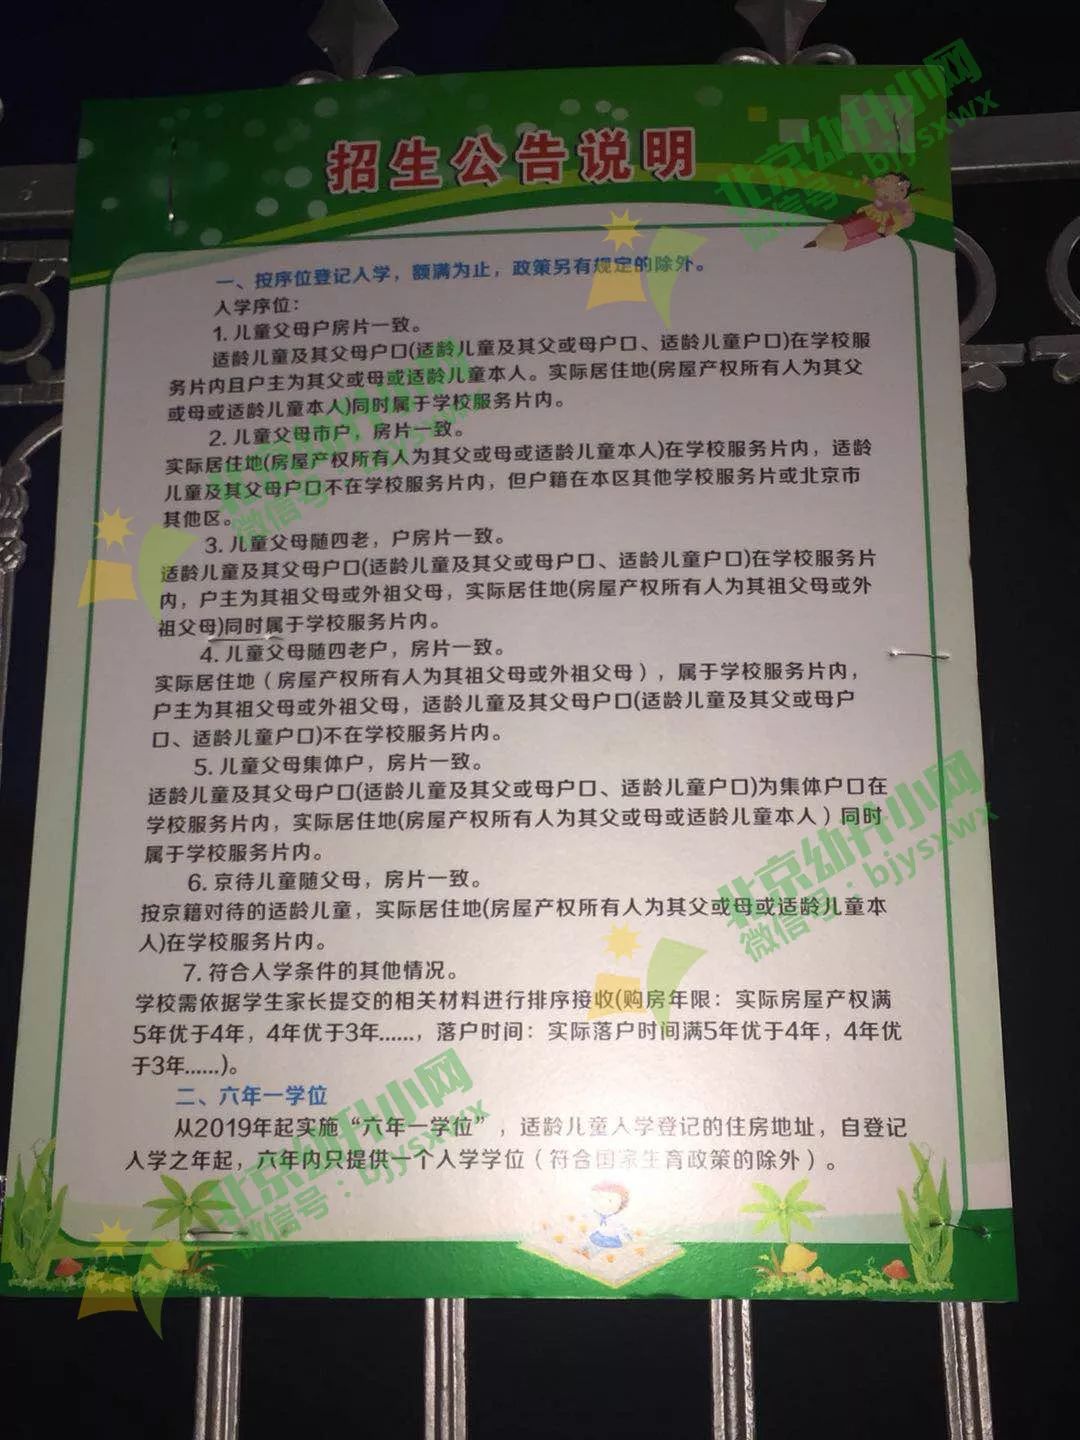 招生公告说明
一、按序位登记入学，额满为止，政策另有规定的除外。
入学序位：
1. 儿童父母户房片一致。
适龄儿童及其父母户口(适龄儿童及其父或母户口、适龄儿童户口)在学校服
务片内且户主为其父或母或适龄儿童本人。实际居住地(房屋产权所有人为其父
或母或适龄儿童本人)同时属于学校服务片内。
2. 儿童父母市户，房片一致。
实际居住地(房屋产权所有人为其父或母或适龄儿童本人)在学校服务片内，适龄
儿童及其父母户口不在学校服务片内，但户籍在本区其他学校服务片或北京市
其他区。
3. 儿童父母随四老，户房片一致。
适龄儿童及其父母户口(适龄儿童及其父或母户口、适龄儿童户口)在学校服务片
内，户主为其祖父母或外祖父母，实际居住地(房屋产权所有人为其祖父母或外
祖父母)同时属于学校服务片内。
4. 儿童父母随四老户，房片一致。
实际居住地（房屋产权所有人为其祖父母或外祖父母），属于学校服务片内，
户主为其祖父母或外祖父母，适龄儿童及其父母户口(适龄儿童及其父或母户
口、适龄儿童户口)不在学校服务片内。
5. 儿童父母集体户，房片一致。
适龄儿童及其父母户口(适龄儿童及其父或母户口、适龄儿童户口)为集体户口在
学校服务片内，实际居住地(房屋产权所有人为其父或母或适龄儿童本人）同时
属于学校服务片内。
6. 京待儿童随父母，房片一致。
按京籍对待的适龄儿童，实际居住地(房屋产权所有人为其父或母或适龄儿童本
人)在学校服务片内。
7. 符合入学条件的其他情况。
学校需依据学生家长提交的相关材料进行排序接收(购房年限：实际房屋产权满
5年优于4年，4年优于3年......，落户时间：实际落户时间满5年优于4年，4年优
于3年......)。
二、六年一学位
从2019年起实施“六年一学位”，适龄儿童入学登记的住房地址，自登记
入学之年起，六年内只提供一个入学学位（符合国家生育政策的除外）。
北京幼升小网
微信号：bjysxwx
北京幼升小网
微信号：bjysxwx
北京幼升小网
微信号：bjysxwx
北京幼升小网
微信号：bjysxwx